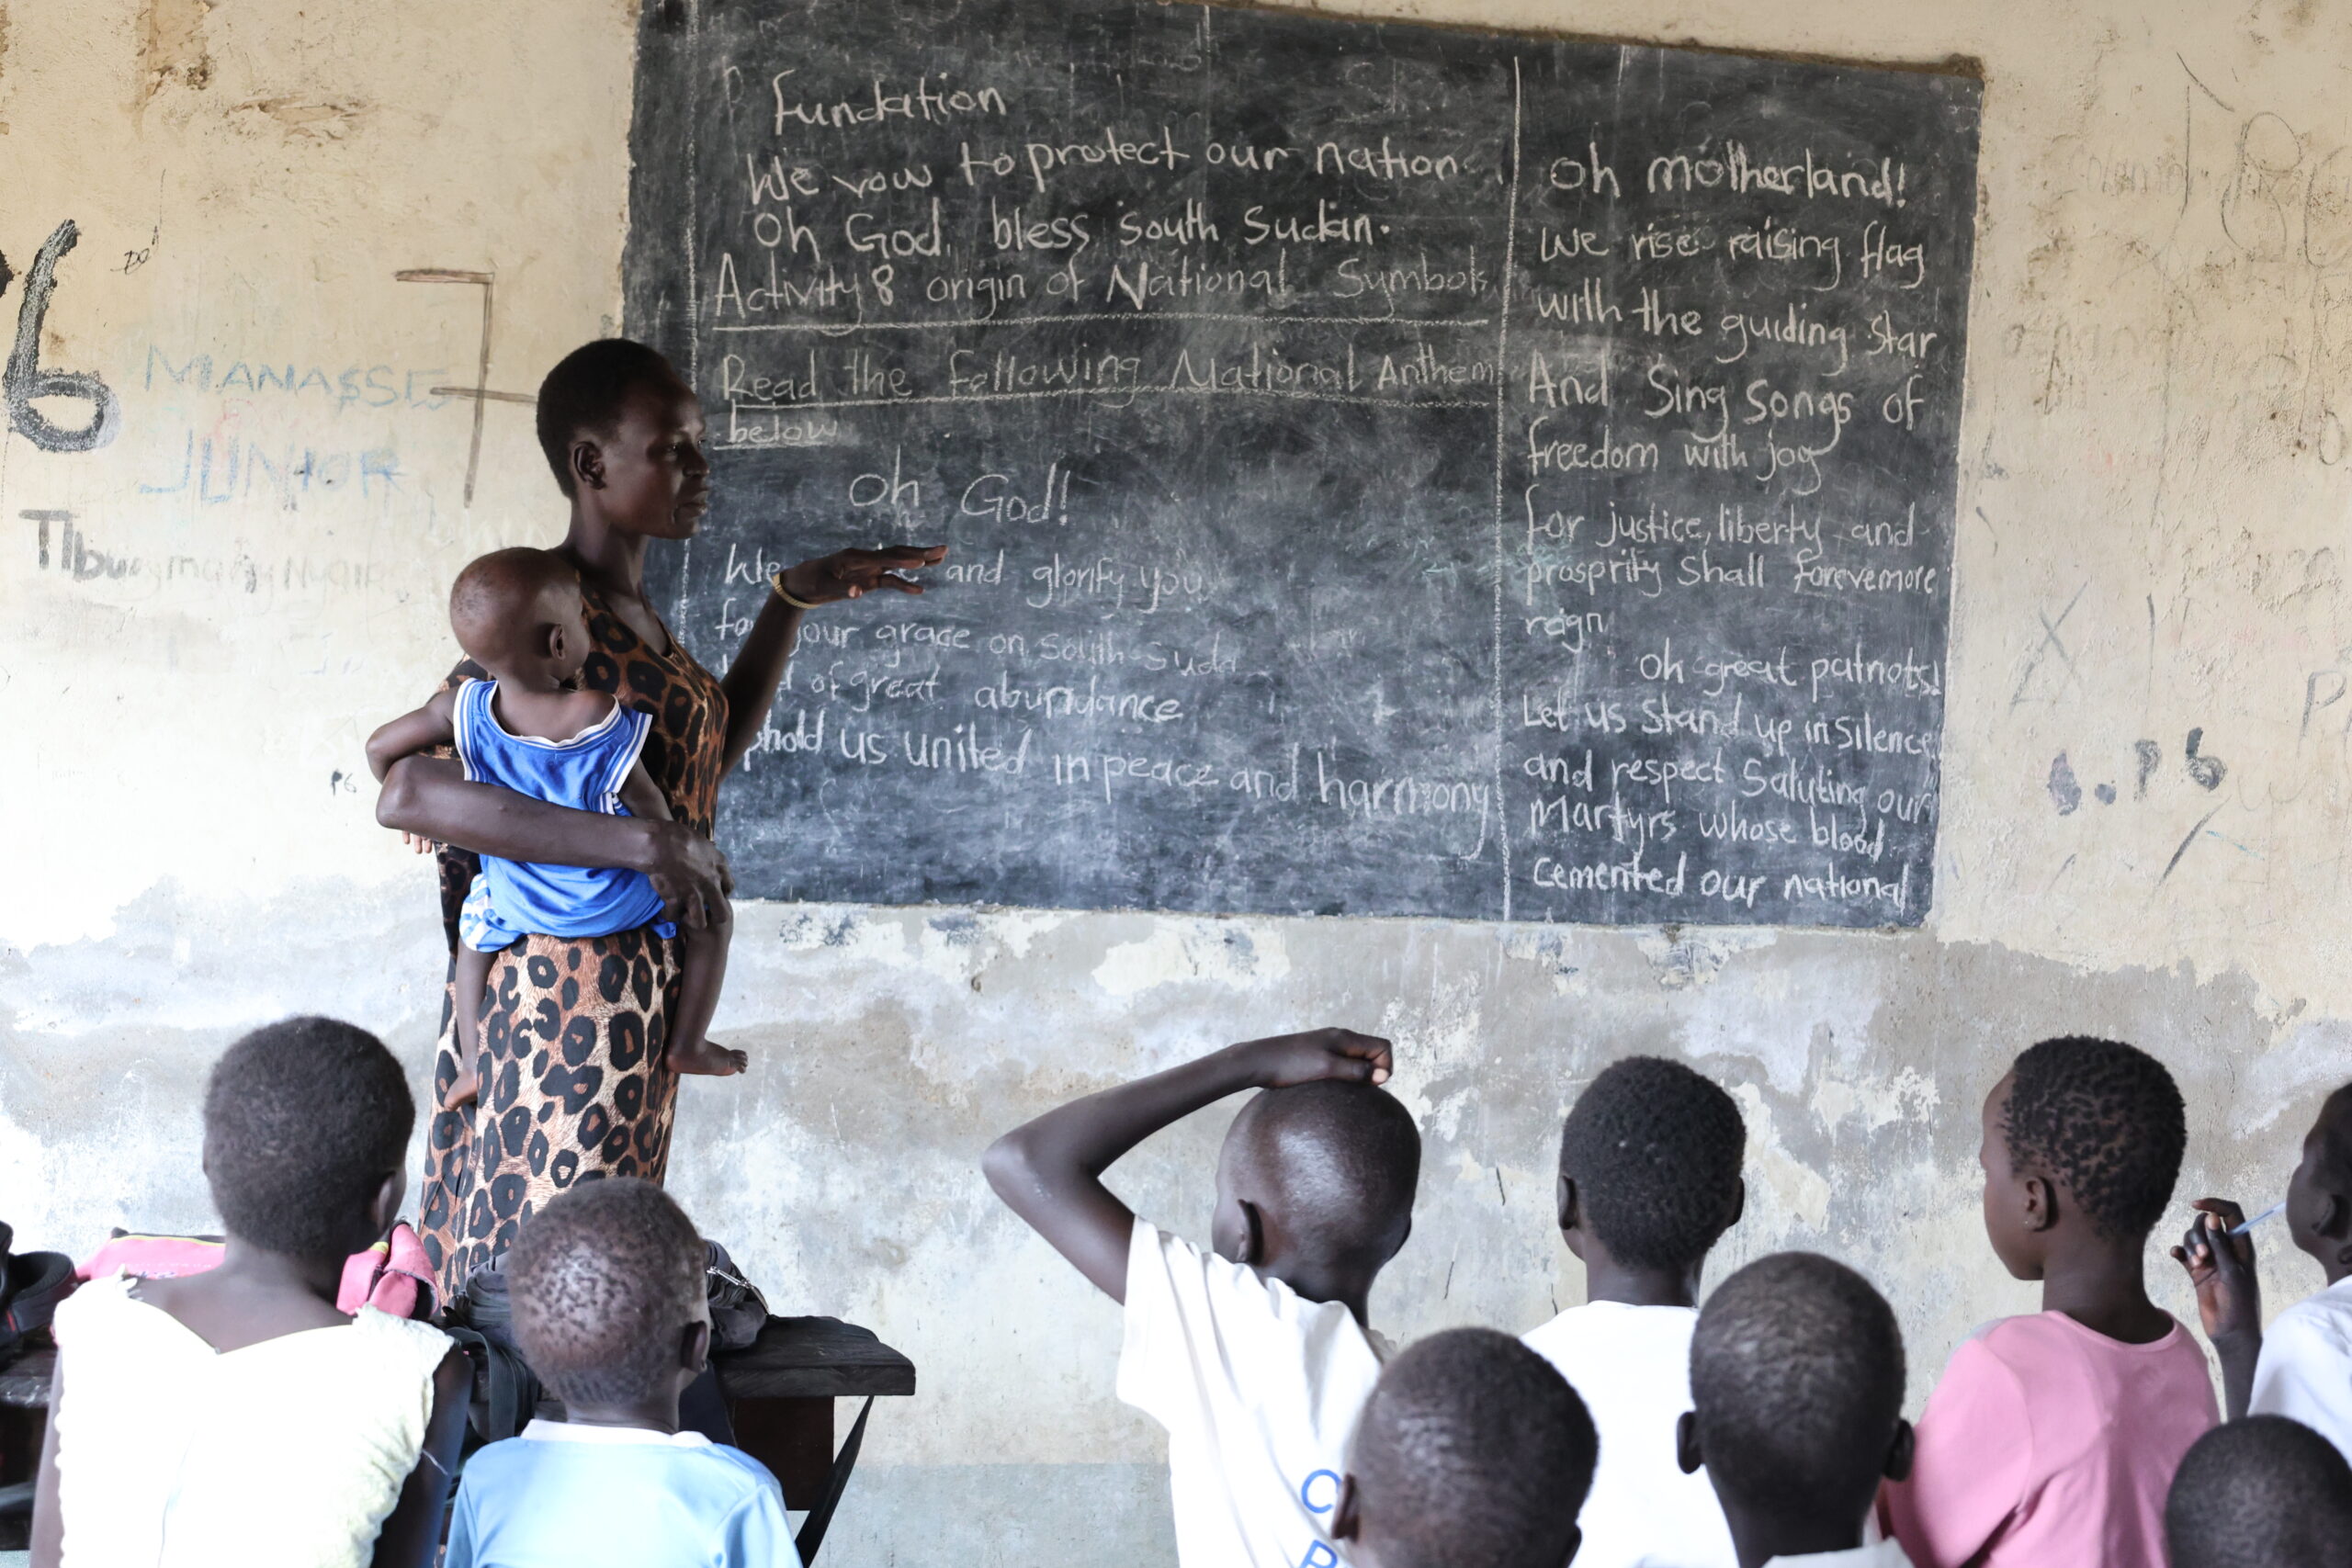 Fundation
We vow to protect our nation
Oh God, bless South Sudan.
Activity 8 origin of National Symbols
Read the following National Anthem
below
Oh God!
We and glorify you
for your grace on South Suda
of great abundance
phold us united in peace and harmony
Oh motherland!
We rise raising flag
with the guiding star
And Sing Songs of
freedom with joy
for justice, liberty and
prosprity Shall forevemore
reign
Oh great patriots!
Let us Stand up in Silence
and respect Saluting our
Martyrs whose blood
cemented our national
6
MANASSE
JUNIOR
7
P6
6.P6
C